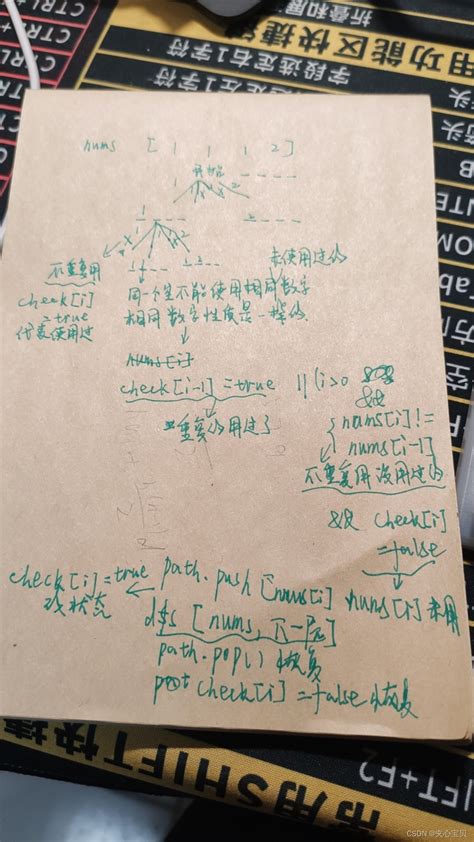 nums [ 1 1 1 2 ]
开始
不重复用
check[i]
=true
代表使用过
未使用过的
同一个皇不能使用相同数字
相同数字性质是一样的
nums[i]
check[i-1]=true || (i>0
&&
nums[i]!=
nums[i-1]
重复的用过了
不重复用没用过的
&& check[i]
=false
check[i]=true path.push[nums[i]
nums[i]未用
改状态
dfs [nums, 下一层]
path.pop() 恢复
check[i]=false 恢复
用功能区快捷
折叠和展
字段选定右1字符
定左1字符
CTRL+
常用SHIFT快捷
SHIFT+F2
CSDN @夹心宝贝